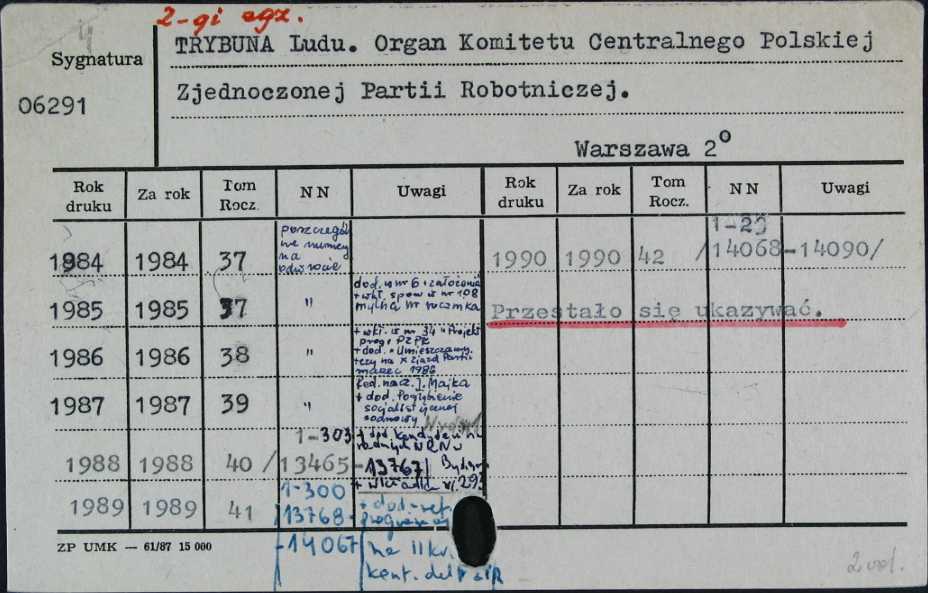 2-gi egz.
Sygnatura
06291
TRYBUNA Ludu. Organ Komitetu Centralnego Polskiej
Zjednoczonej Partii Robotniczej.
Warszawa 2°
Rok druku Za rok Tom Rocz. NN Uwagi Rok druku Za rok Tom Rocz. NN Uwagi
1984 1984 37 numery na odwrocie
1990 1990 42 1-23 /14068-14090/
1985 1985 37 " dod. w nr 6 + wkł. w nr 108 mylna nr rocznika
Przestało się ukazywać.
1986 1986 38 " + wkł. w nr 34 Projekt prog. PZPR + dod. na X Zjazd Partii marzec 1986
1987 1987 39 " Red. nacz. J. Majka + dod. socjalistycznej odnowy
1988 1988 40 1-303 /13465-13767/ + wkładka
1989 1989 41 1-300 /13768-14067/ + dod. na II
ZP UMK — 61/87 15 000
2 vol.